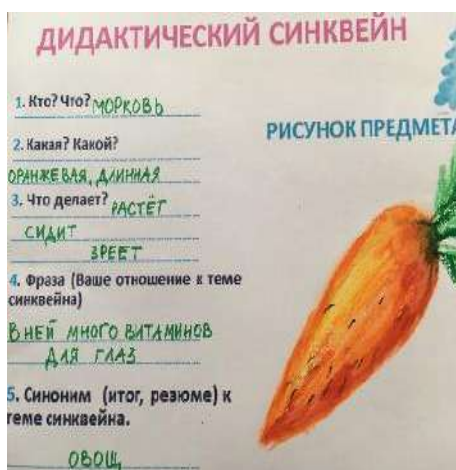 ДИДАКТИЧЕСКИЙ СИНКВЕЙН
1. Кто? Что? МОРКОВЬ
РИСУНОК ПРЕДМЕТА
2. Какая? Какой?
ОРАНЖЕВАЯ, ДЛИННАЯ
3. Что делает? РАСТЁТ
СИДИТ
ЗРЕЕТ
4. Фраза (Ваше отношение к теме
синквейна)
В НЕЙ МНОГО ВИТАМИНОВ
ДЛЯ ГЛАЗ
5. Синоним (итог, резюме) к
теме синквейна.
ОВОЩ